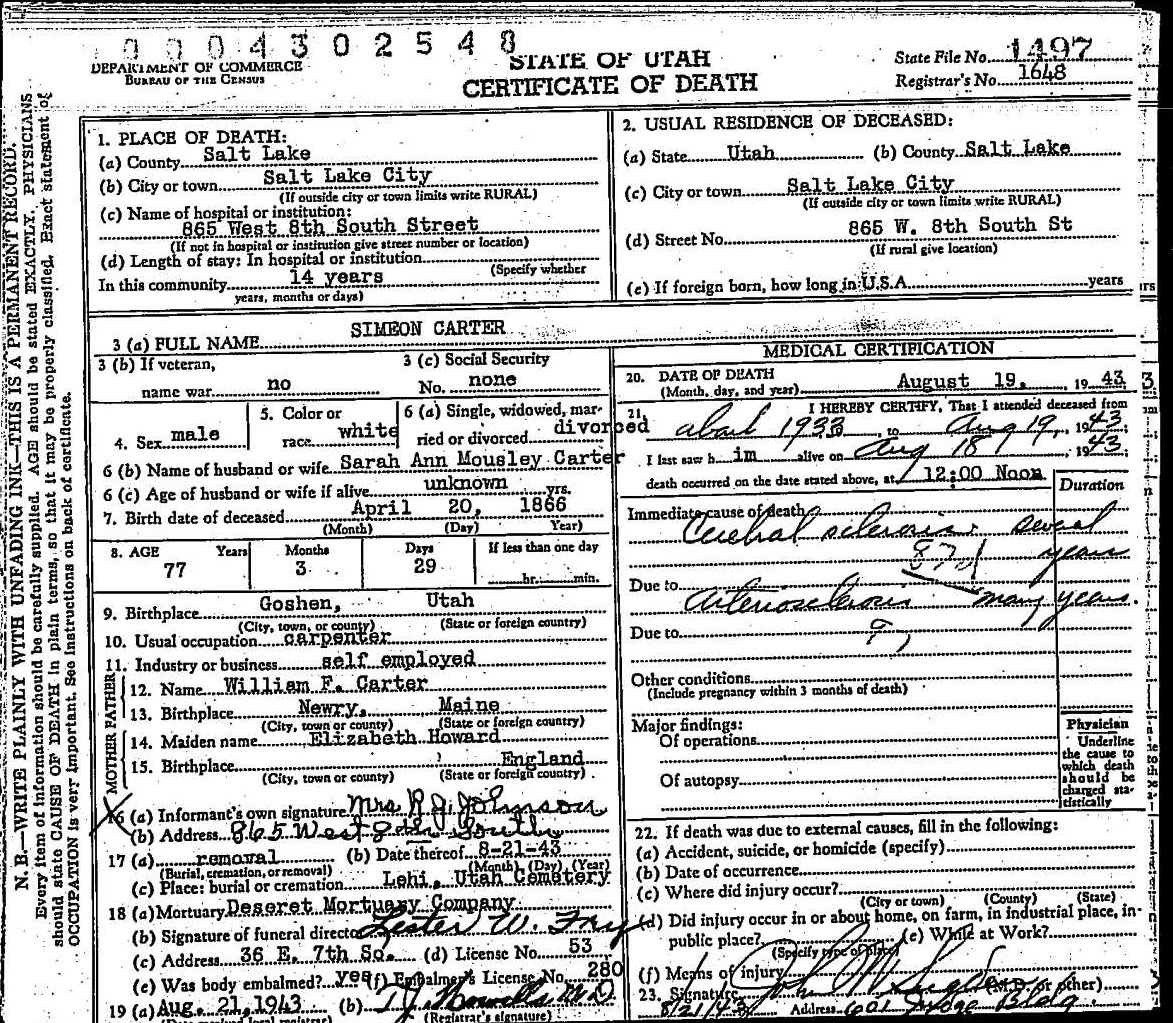 0 0 0 4 3 0 2 5 4 8
DEPARTMENT OF COMMERCE
BUREAU OF THE CENSUS
STATE OF UTAH
CERTIFICATE OF DEATH
State File No. 1497
Registrar's No. 1648
N. B.—WRITE PLAINLY WITH UNFADING INK—THIS IS A PERMANENT RECORD.
Every item of information should be carefully supplied. AGE should be stated EXACTLY. PHYSICIANS
should state CAUSE OF DEATH in plain terms, so that it may be properly classified. Exact statement of
OCCUPATION is very important. See instructions on back of certificate.
1. PLACE OF DEATH:
(a) County Salt Lake
(b) City or town Salt Lake City
(If outside city or town limits write RURAL)
(c) Name of hospital or institution:
865 West 8th South Street
(If not in hospital or institution give street number or location)
(d) Length of stay: In hospital or institution
(Specify whether
In this community 14 years
years, months or days)
2. USUAL RESIDENCE OF DECEASED:
(a) State Utah (b) County Salt Lake
(c) City or town Salt Lake City
(If outside city or town limits write RURAL)
(d) Street No. 865 W. 8th South St
(If rural give location)
(e) If foreign born, how long in U.S.A. years
3 (a) FULL NAME SIMEON CARTER
3 (b) If veteran,
name war no
3 (c) Social Security
No. none
4. Sex male
5. Color or
race white
6 (a) Single, widowed, mar-
ried or divorced divorced
6 (b) Name of husband or wife Sarah Ann Mousley Carter
6 (c) Age of husband or wife if alive unknown yrs.
7. Birth date of deceased April 20, 1866
(Month) (Day) Year)
8. AGE Years Months Days If less than one day
77 3 29 hr. min.
9. Birthplace Goshen, Utah
(City, town, or county) (State or foreign country)
10. Usual occupation carpenter
11. Industry or business self employed
FATHER
12. Name William F. Carter
13. Birthplace Newry, Maine
(City, town or county) (State or foreign country)
MOTHER
14. Maiden name Elizabeth Howard
15. Birthplace England
(City, town or county) (State or foreign country)
16 (a) Informant's own signature Mrs R J Johnson
(b) Address 865 West 8th South
17 (a) removal (b) Date thereof 8-21-43
(Burial, cremation, or removal) (Month) (Day) (Year)
(c) Place: burial or cremation Lehi, Utah Cemetery
18 (a) Mortuary Deseret Mortuary Company
(b) Signature of funeral director Lester W. Fry
(c) Address 36 E. 7th So. (d) License No. 53
(e) Was body embalmed? yes (f) Embalmer's License No. 280
19 (a) Aug. 21, 1943 (b) M.D.
(Date received local registrar) (Registrar's signature)
MEDICAL CERTIFICATION
20. DATE OF DEATH
(Month, day, and year) August 19, 1943
21. I HEREBY CERTIFY, That I attended deceased from
about 1933 to Aug 19, 1943
I last saw him alive on Aug 18 1943
death occurred on the date stated above, at 12:00 Noon
Duration
Immediate cause of death
Cerebral sclerosis several
years
Due to
Arteriosclerosis many years.
Due to
Other conditions
(Include pregnancy within 3 months of death)
Major findings:
Of operations
Of autopsy
Physician
Underline
the cause to
which death
should be
charged sta-
tistically
22. If death was due to external causes, fill in the following:
(a) Accident, suicide, or homicide (specify)
(b) Date of occurrence
(c) Where did injury occur?
(City or town) (County) (State)
(d) Did injury occur in or about home, on farm, in industrial place, in-
public place? (e) While at Work?
(Specify type of place)
(f) Means of injury
23. Signature John (M.D. or other)
8/21/43 Address 601 Judge Bldg